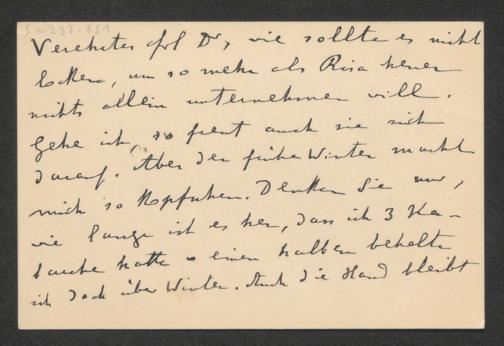 I.N. 232.851
Verehrtes Frl Dr, wie sollte es nicht
locken, um so mehr als Risa heuer
nichts allein unternehmen will.
Gehe ich, so freut auch sie sich
darauf. Aber der frühe Winter macht
mich so Kopfscheu. Denken Sie nur,
wie lange ist es her, dass ich 3 Ka-
hatte einen halben behalte
ich doch über Winter. Auch die Hand bleibt